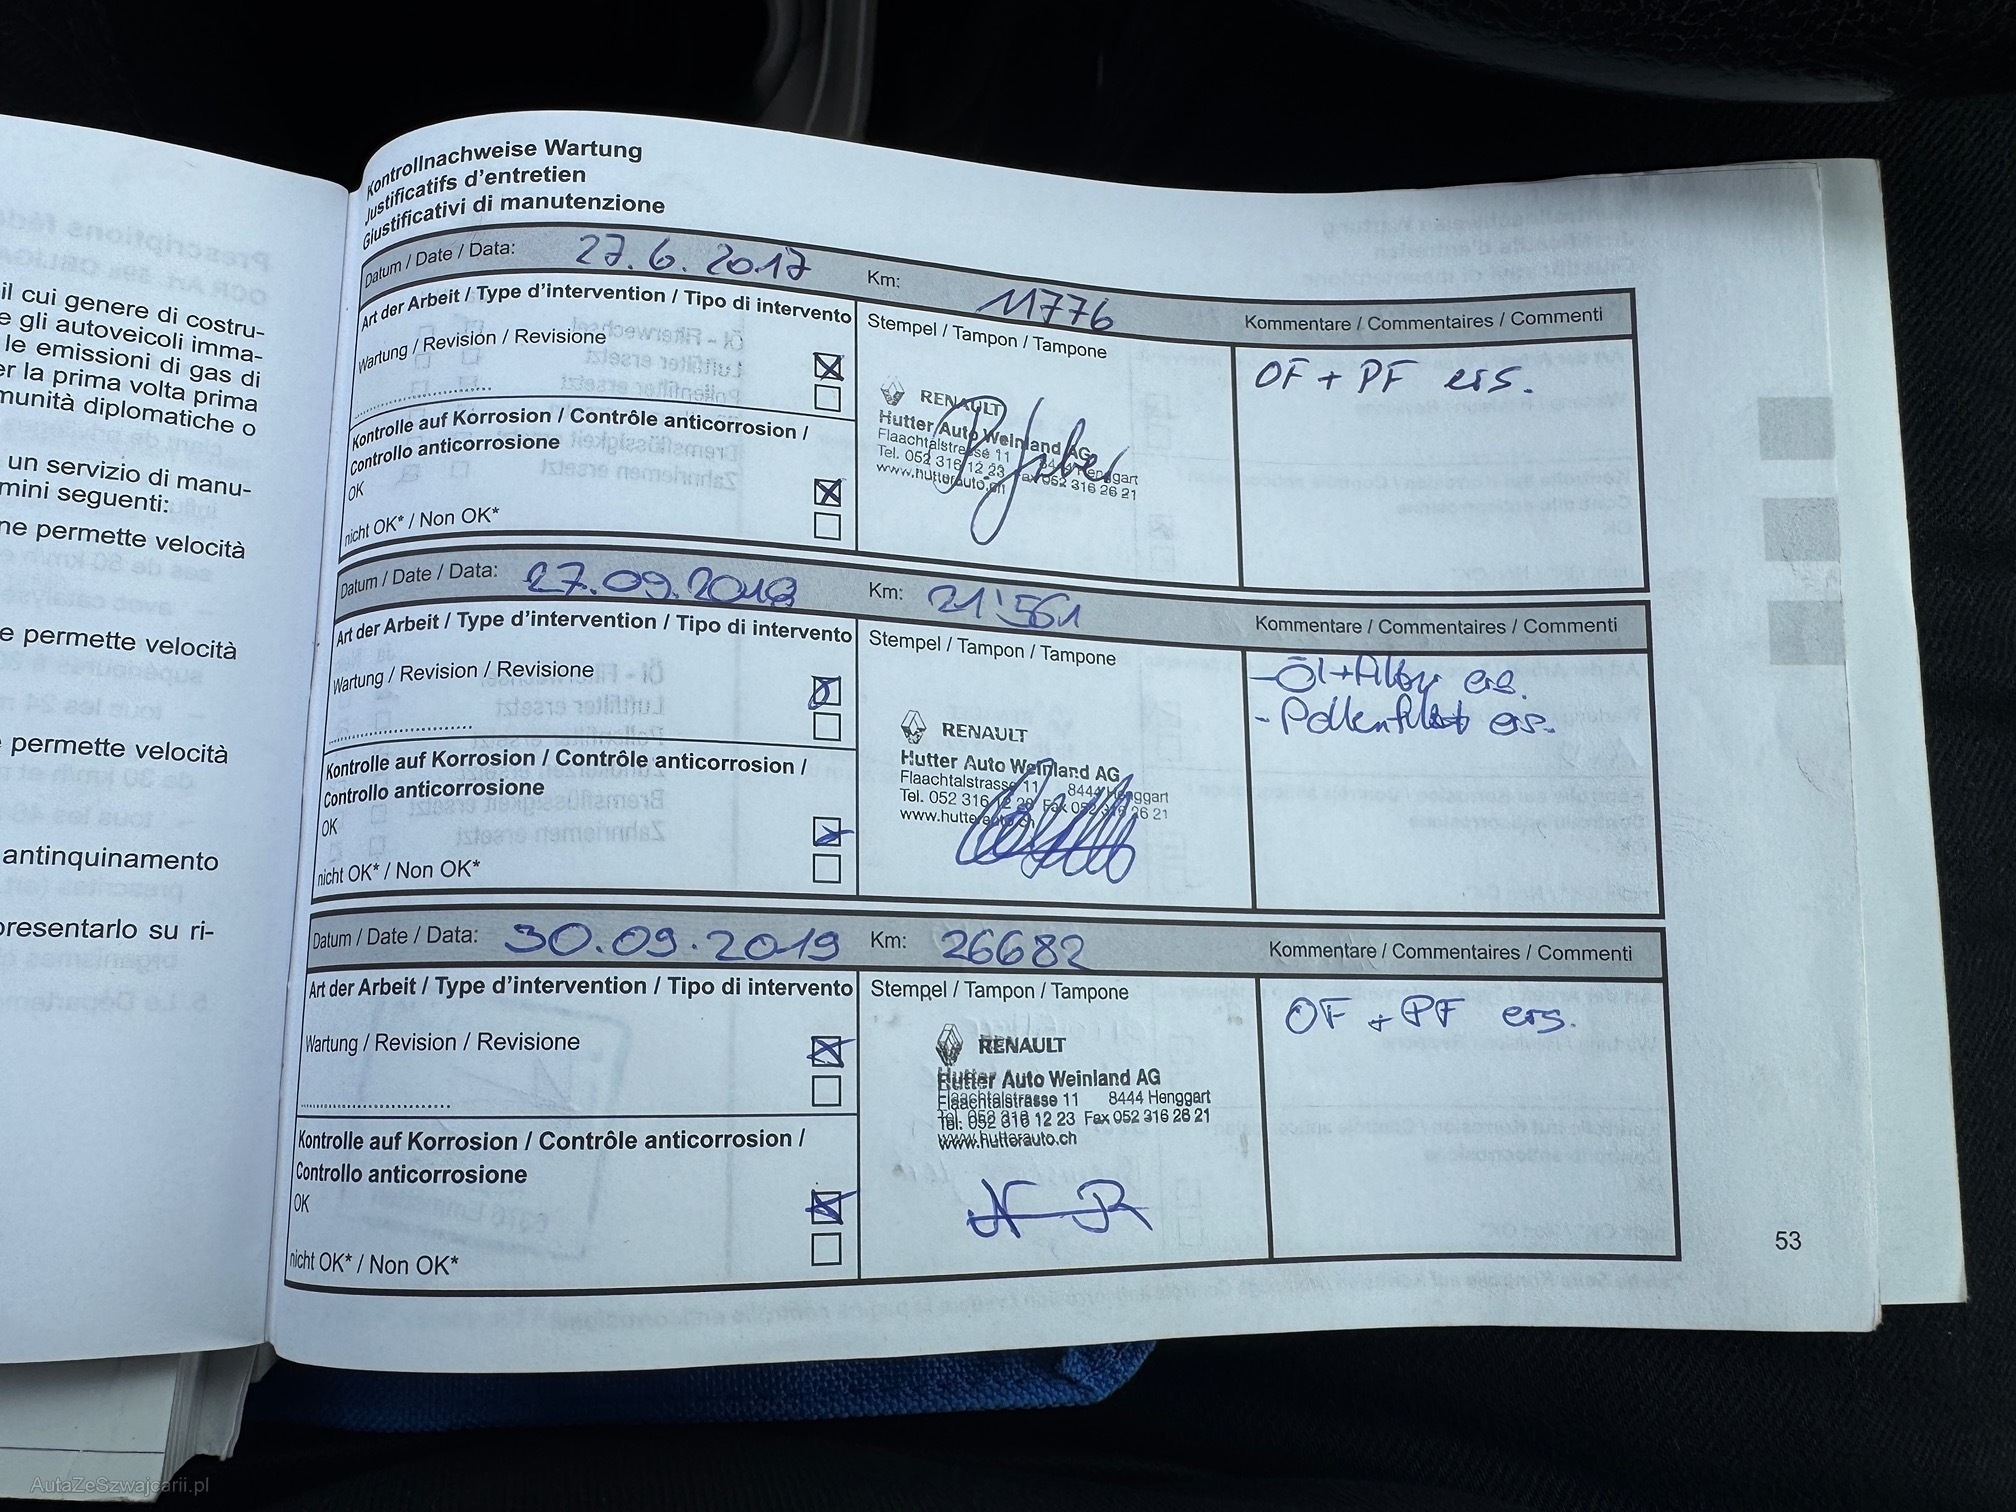 il cui genere di costru-
e gli autoveicoli imma-
le emissioni di gas di
er la prima volta prima
munità diplomatiche o
un servizio di manu-
mini seguenti:
ne permette velocità
e permette velocità
permette velocità
antinquinamento
presentarlo su ri-
Kontrollnachweise Wartung
Justificatifs d'entretien
Giustificativi di manutenzione
Datum / Date / Data: 27.6.2017 Km: 11776 Kommentare / Commentaires / Commenti
Art der Arbeit / Type d'intervention / Tipo di intervento
Wartung / Revision / Revisione
Kontrolle auf Korrosion / Contrôle anticorrosion /
Controllo anticorrosione
OK
nicht OK* / Non OK*
Stempel / Tampon / Tampone
RENAULT
Hutter Auto Weinland AG
Flaachtalstrasse 11 8444 Henggart
Tel. 052 316 12 23 Fax 052 316 26 21
www.hutterauto.ch
OF + PF ers.
Datum / Date / Data: 27.09.2018 Km: 21'561 Kommentare / Commentaires / Commenti
Art der Arbeit / Type d'intervention / Tipo di intervento
Wartung / Revision / Revisione
Kontrolle auf Korrosion / Contrôle anticorrosion /
Controllo anticorrosione
OK
nicht OK* / Non OK*
Stempel / Tampon / Tampone
RENAULT
Hutter Auto Weinland AG
Flaachtalstrasse 11 8444 Henggart
Tel. 052 316 12 23 Fax 052 316 26 21
www.hutterauto.ch
- Öl + Filter ers.
- Pollenfilter ers.
Datum / Date / Data: 30.09.2019 Km: 26682 Kommentare / Commentaires / Commenti
Art der Arbeit / Type d'intervention / Tipo di intervento
Wartung / Revision / Revisione
Kontrolle auf Korrosion / Contrôle anticorrosion /
Controllo anticorrosione
OK
nicht OK* / Non OK*
Stempel / Tampon / Tampone
RENAULT
Hutter Auto Weinland AG
Flaachtalstrasse 11 8444 Henggart
Tel. 052 316 12 23 Fax 052 316 26 21
www.hutterauto.ch
OF + PF ers.
53
AutaZeSzwajcarii.pl